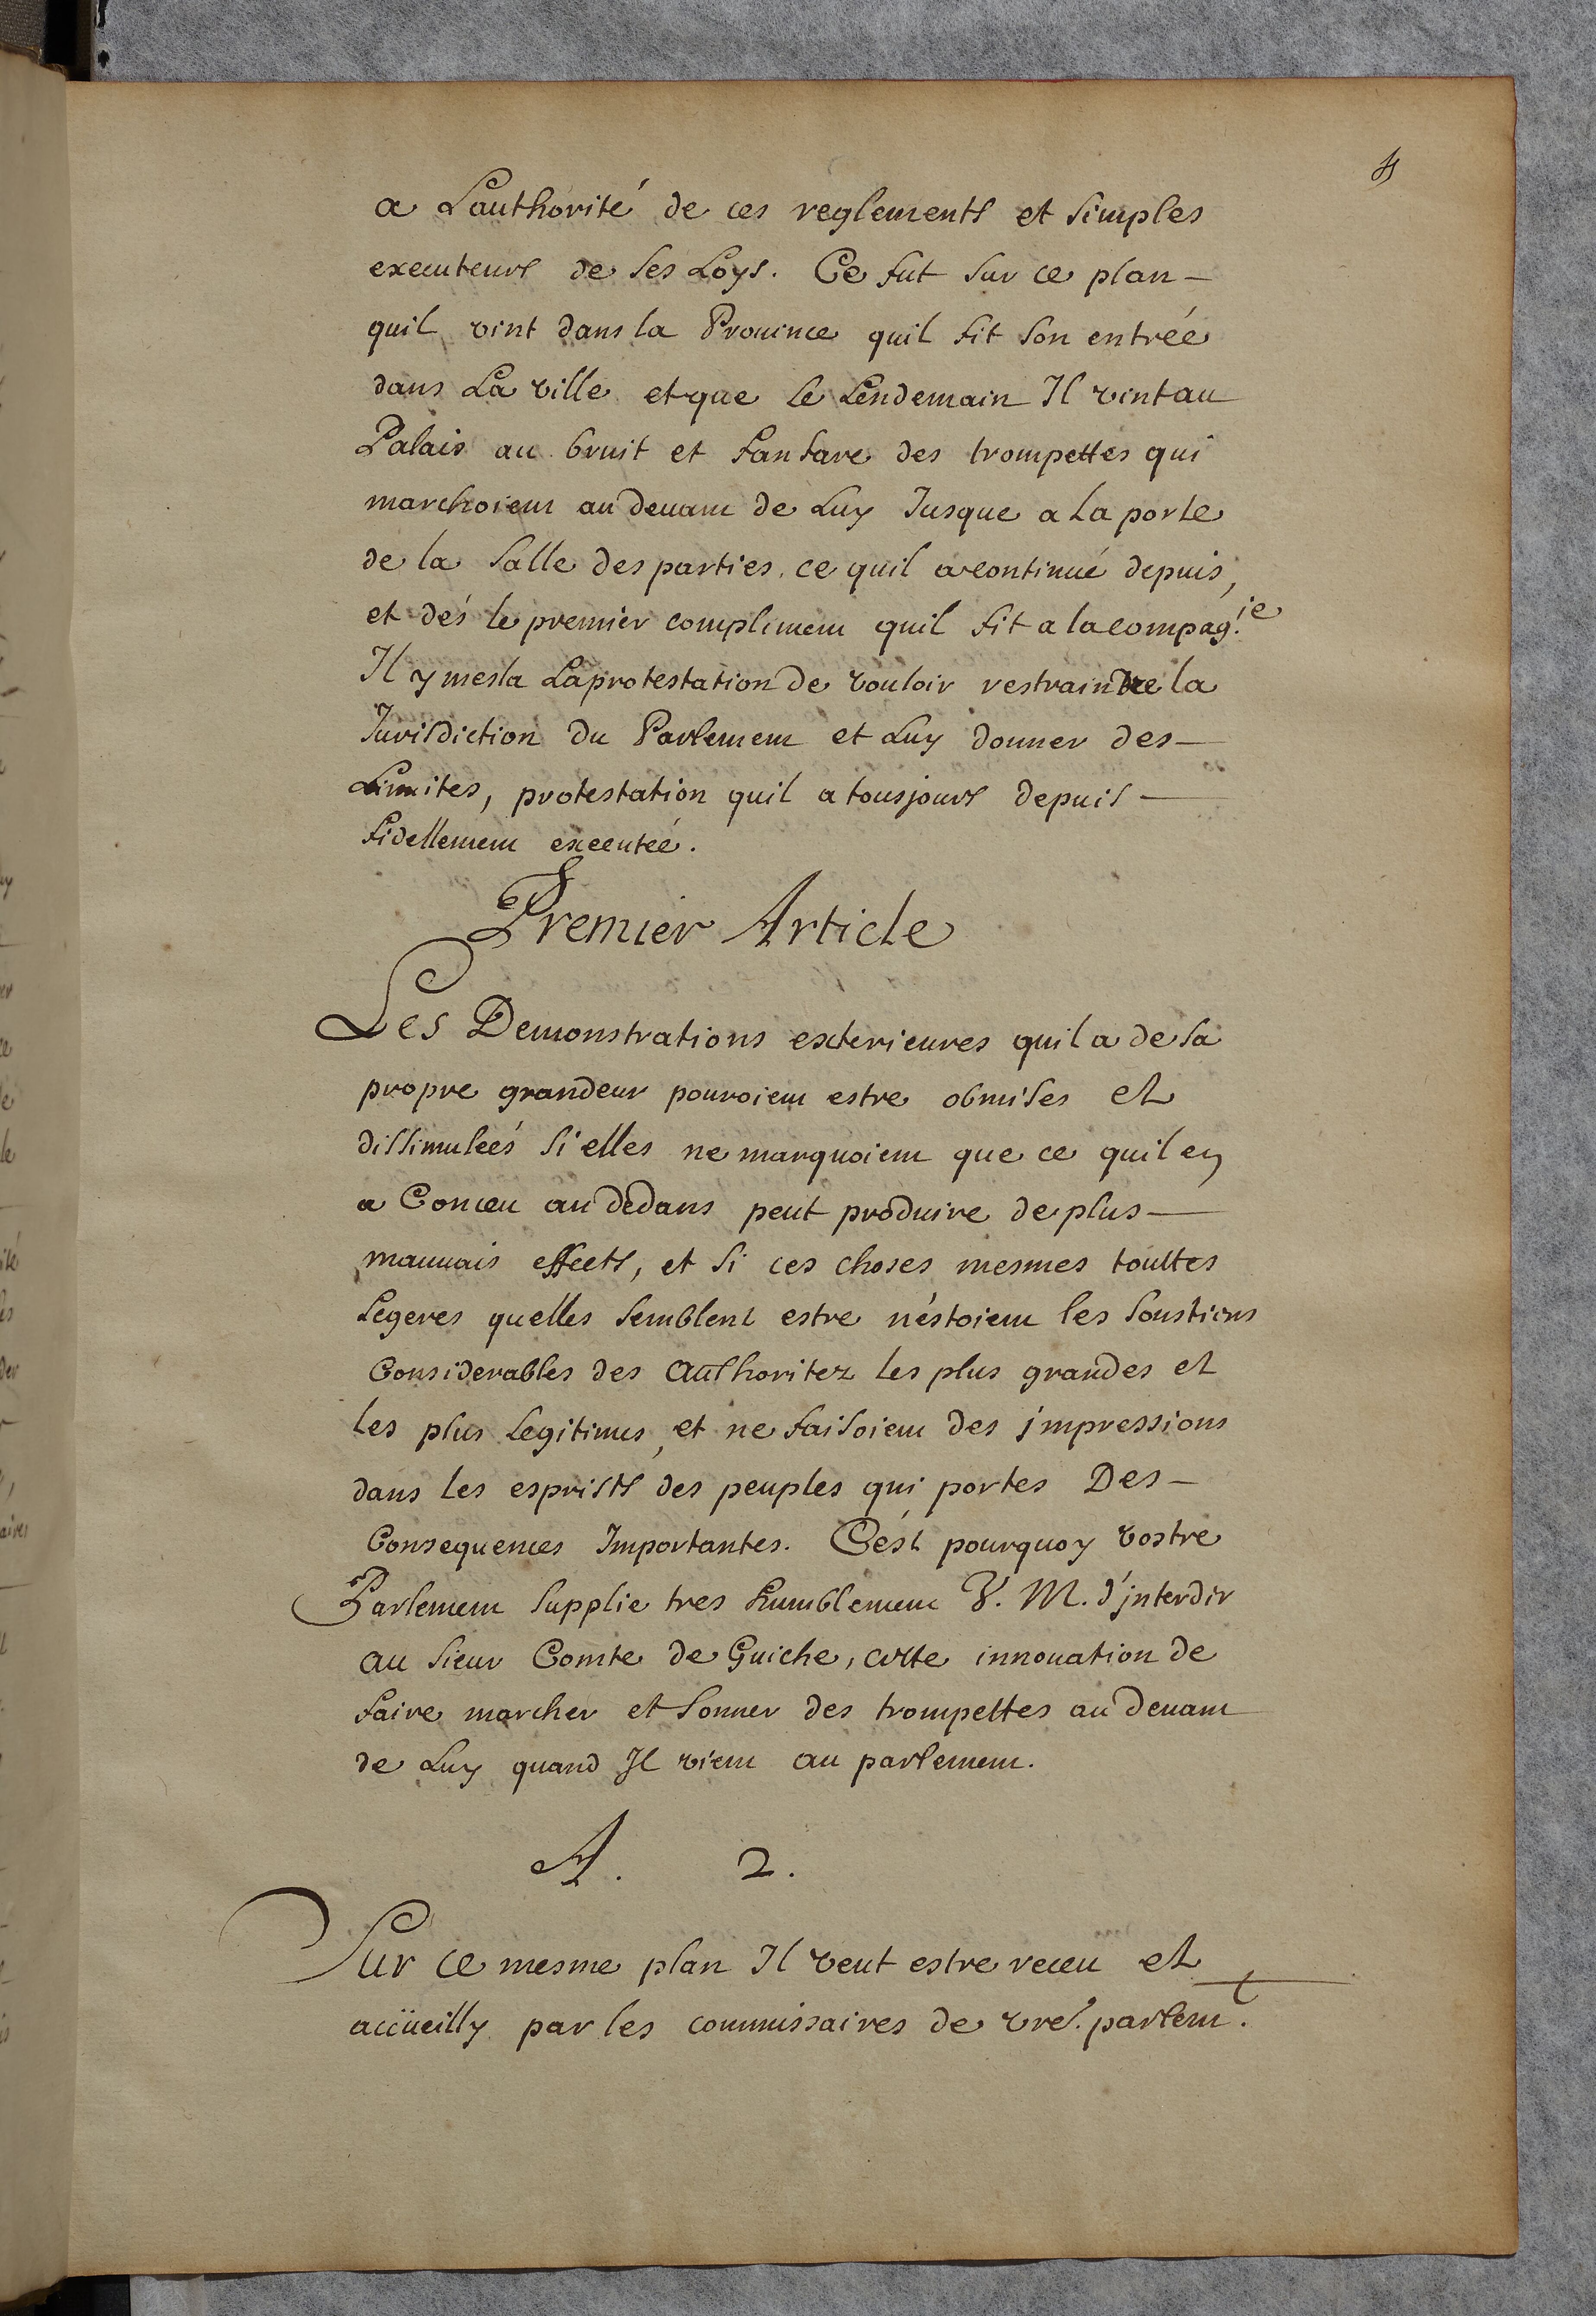 a Lauthorité de ces reglements et simples
executeurs de ses Loys. Ce fut sur ce plan -
quil vint dans la Prouince quil fit son entrée
dans La ville et que le Lendemain Il vint au
Palais au bruit et fanfare des trompettes qui
marchoient au deuant de Luy Jusque a la porte
de la salle des parties, ce quil a continué depuis,
et dés le premier compliment quil fit a la compag.ie
Il y mesla La protestation de vouloir restraindre la
Jurisdiction du Parlement et Luy donner des -
Limites, protestation quil a tousjours depuis -
fidellement executée.
Premier Article
Les Demonstrations exterieures quil a de sa
propre grandeur pouroient estre obmises et
dissimuleés si elles ne marquoient que ce quil en
a Conceu au dedans peut produire de plus -
mauuais effects, et si ces choses mesmes touttes
Legeres quelles semblent estre n'éstoient les soustiens
Considerables des authoritez les plus grandes et
les plus Legitimes, et ne faisoient des jmpressions
dans les esprists des peuples qui portes Des -
Consequences Importantes. C'ést pourquoy vostre
Parlement supplie tres humblement V. M. d'jnterdir
au sieur Comte de Guiche, cette innouation de
faire marcher et sonner des trompettes au deuant
de Luy quand Il vient au parlement.
A. 2.
Sur ce mesme plan Il veut estre receu et
accüeilly par les commissaires de vre. parlem.t